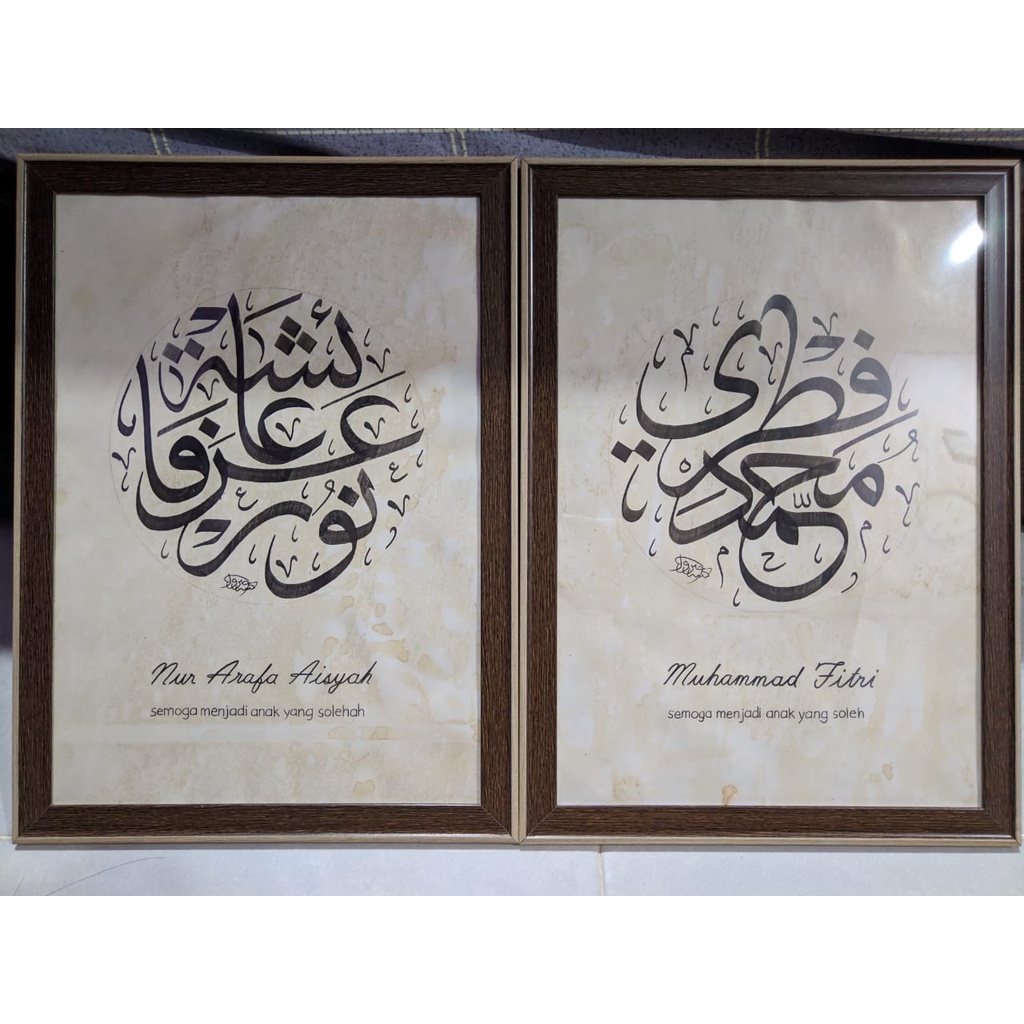 نور عرفا عائشة
Nur Arafa Aisyah
semoga menjadi anak yang solehah
محمد فطري
Muhammad Fitri
semoga menjadi anak yang soleh